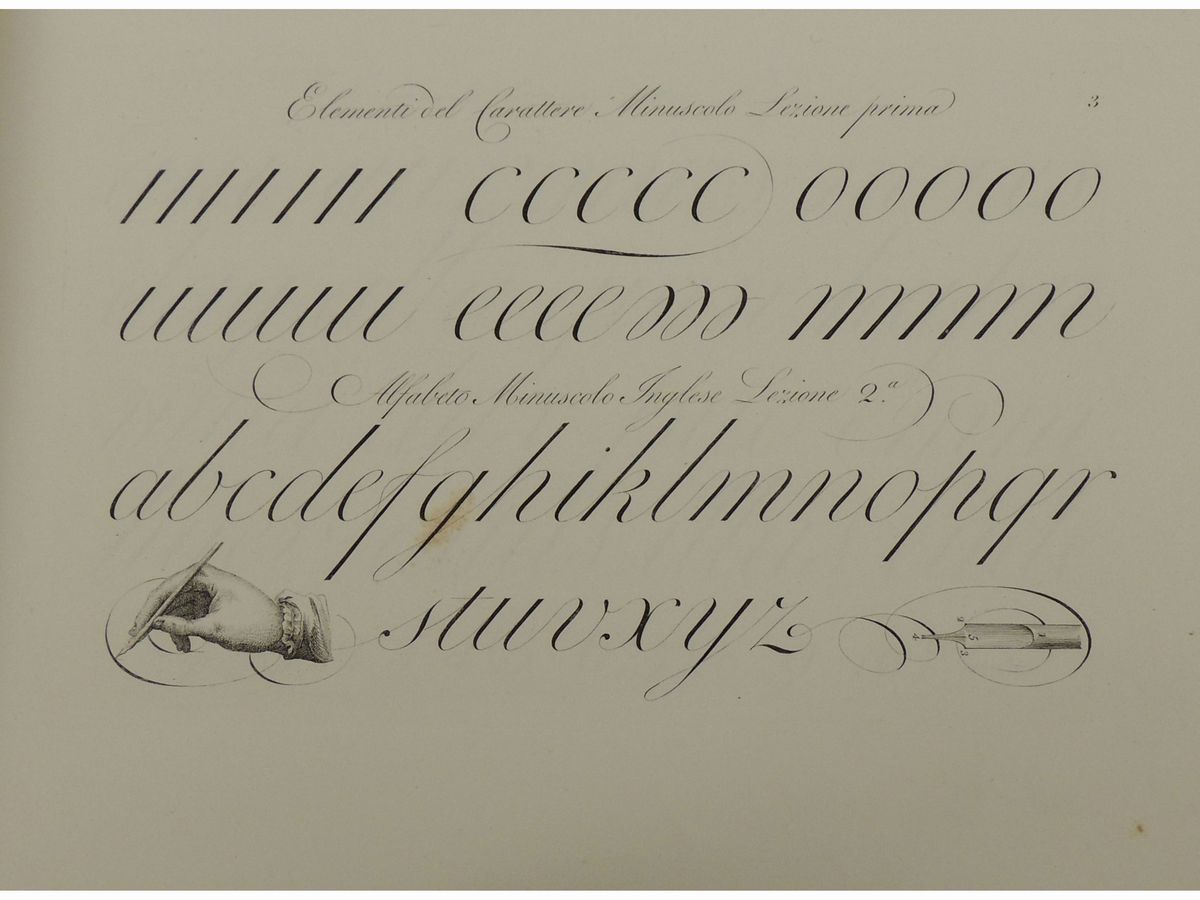 Elementi del Carattere Minuscolo Lezione prima 3
//////// ccccc ooooo
ıııııu eeee ɔɔɔ ııııın
Alfabeto Minuscolo Inglese Lezione 2.a
abcdefghiklmnopqr
stuvxyz
4 5 3 1